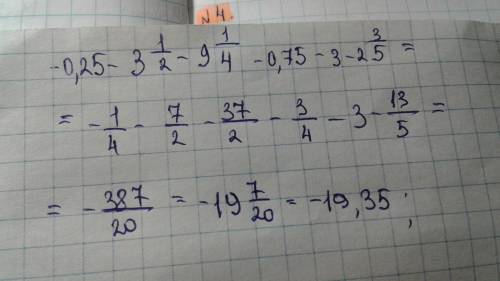 №4.
-0,25 - 3 1/2 - 9 1/4 - 0,75 - 3 - 2 3/5 =
= - 1/4 - 7/2 - 37/2 - 3/4 - 3 - 13/5 =
= - 387/20 = -19 7/20 = -19,35;